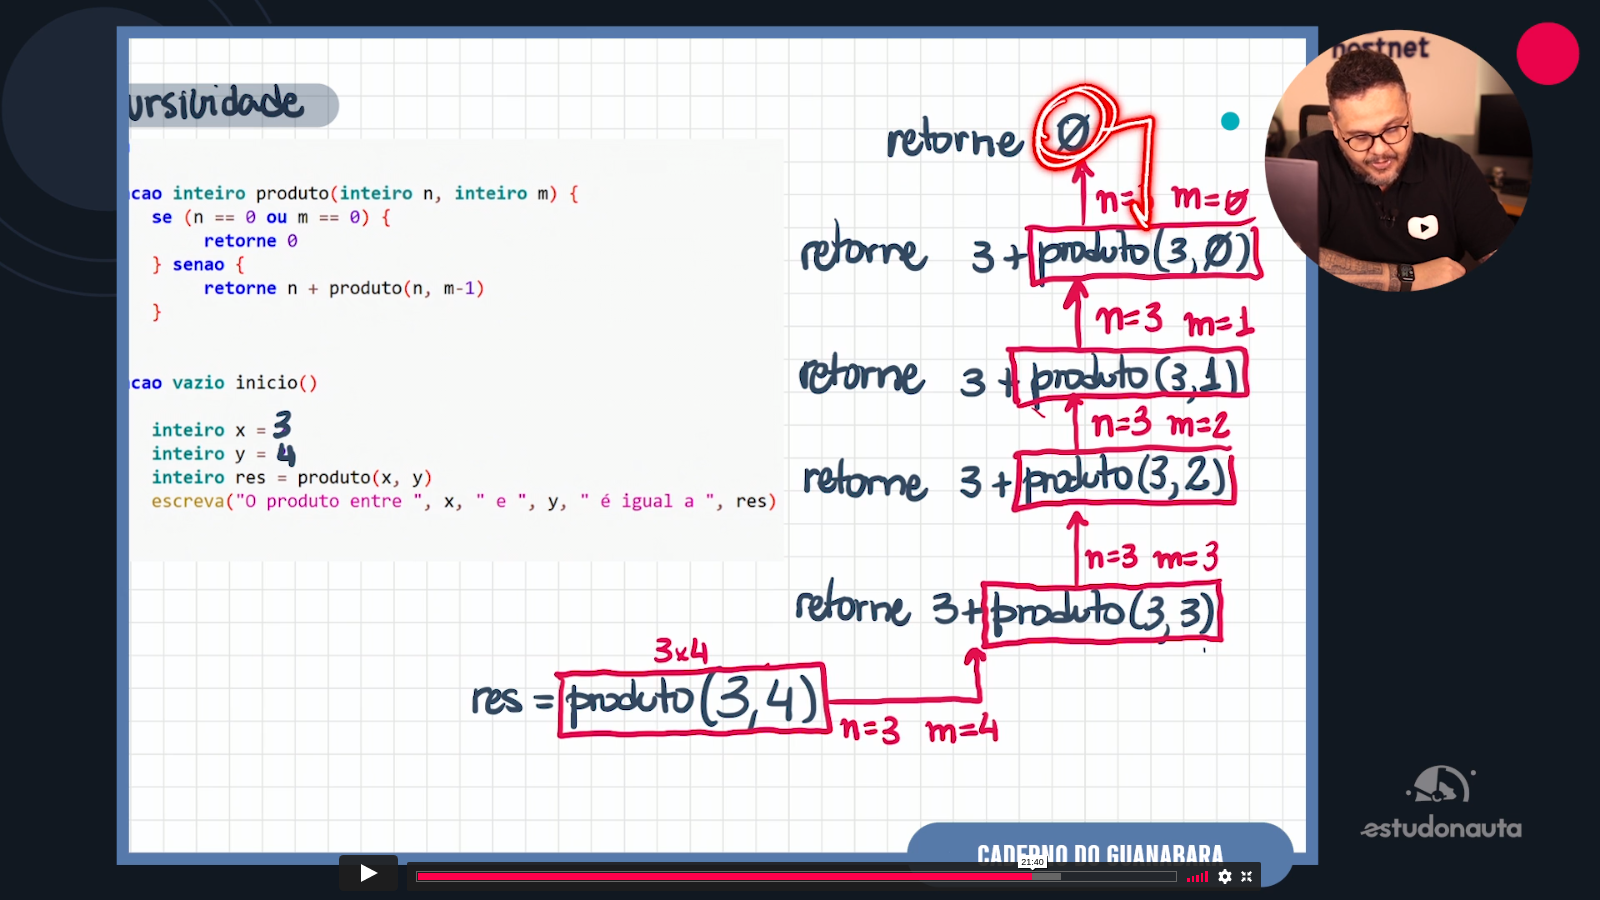 ursividade
cao inteiro produto(inteiro n, inteiro m) {
se (n == 0 ou m == 0) {
retorne 0
} senao {
retorne n + produto(n, m-1)
}
cao vazio inicio()
inteiro x = 3
inteiro y = 4
inteiro res = produto(x, y)
escreva("O produto entre ", x, " e ", y, " é igual a ", res)
retorne 0
n= m=0
retorne 3+produto(3,0)
n=3 m=1
retorne 3+produto(3,1)
n=3 m=2
retorne 3+produto(3,2)
n=3 m=3
retorne 3+produto(3,3)
3x4
res = produto(3,4)
n=3 m=4
hostnet
estudonauta
CADERNO DO GUANABARA
21:40